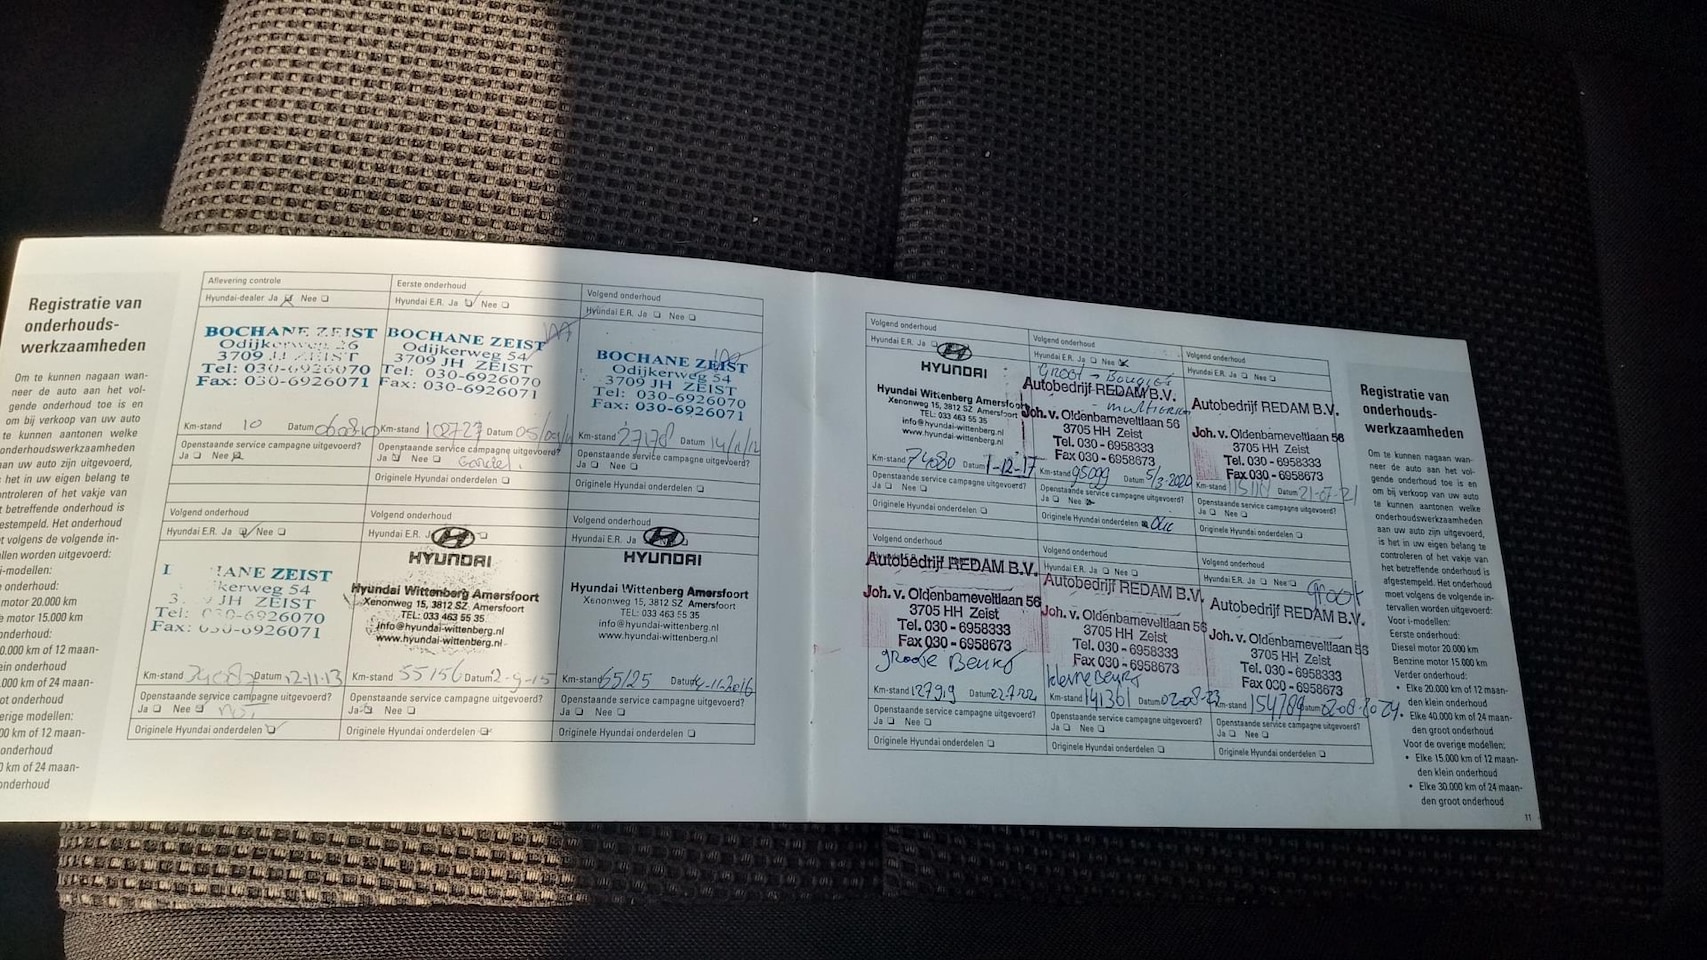 Registratie van
onderhouds-
werkzaamheden
Om te kunnen nagaan wan-
neer de auto aan het vol-
gende onderhoud toe is en
om bij verkoop van uw auto
te kunnen aantonen welke
onderhoudswerkzaamheden
aan uw auto zijn uitgevoerd,
het in uw eigen belang te
ontroleren of het vakje van
t betreffende onderhoud is
estempeld. Het onderhoud
t volgens de volgende in-
llen worden uitgevoerd:
i-modellen:
onderhoud:
motor 20.000 km
motor 15.000 km
onderhoud:
0.000 km of 12 maan-
ein onderhoud
.000 km of 24 maan-
ot onderhoud
erige modellen:
00 km of 12 maan-
onderhoud
0 km of 24 maan-
onderhoud
Aflevering controle
Hyundai-dealer Ja Nee
BOCHANE ZEIST
Odijkerweg 26
3709 ZEIST
Tel: 030-6926070
Fax: 030-6926071
Km-stand 10 Datum
Openstaande service campagne uitgevoerd?
Ja Nee
Eerste onderhoud
Hyundai E.R. Ja Nee
BOCHANE ZEIST
Odijkerweg 54
3709 JH ZEIST
Tel: 030-6926070
Fax: 030-6926071
Km-stand Datum
Openstaande service campagne uitgevoerd?
Ja Nee
Originele Hyundai onderdelen
Volgend onderhoud
Hyundai E.R. Ja Nee
BOCHANE ZEIST
Odijkerweg 54
3709 JH ZEIST
Tel: 030-6926070
Fax: 030-6926071
Km-stand Datum
Openstaande service campagne uitgevoerd?
Ja Nee
Originele Hyundai onderdelen
Volgend onderhoud
Hyundai E.R. Ja Nee
ANE ZEIST
kerweg 54
JH ZEIST
Tel: 6926070
Fax: 6926071
Km-stand Datum 12-11-13
Openstaande service campagne uitgevoerd?
Ja Nee
Originele Hyundai onderdelen
Volgend onderhoud
Hyundai E.R.
HYUNDAI
Hyundai Wittenberg Amersfoort
Xenonweg 15, 3812 SZ Amersfoort
TEL: 033 463 55 35
info@hyundai-wittenberg.nl
www.hyundai-wittenberg.nl
Km-stand 55156 Datum 2-9-15
Openstaande service campagne uitgevoerd?
Ja Nee
Originele Hyundai onderdelen
Volgend onderhoud
Hyundai E.R.
HYUNDAI
Hyundai Wittenberg Amersfoort
Xenonweg 15, 3812 SZ Amersfoort
TEL: 033 463 55 35
info@hyundai-wittenberg.nl
www.hyundai-wittenberg.nl
Km-stand 65125 Datum
Openstaande service campagne uitgevoerd?
Ja Nee
Originele Hyundai onderdelen
Volgend onderhoud
Hyundai E.R. Ja
HYUNDAI
Hyundai Wittenberg Amersfoort
Xenonweg 15, 3812 SZ Amersfoort
TEL: 033 463 55 35
info@hyundai-wittenberg.nl
www.hyundai-wittenberg.nl
Km-stand 74080 Datum 1-12-17
Openstaande service campagne uitgevoerd?
Ja Nee
Originele Hyundai onderdelen
Volgend onderhoud
Hyundai E.R. Ja Nee
Groot + Bougies
Autobedrijf REDAM B.V.
multiriem
Joh. v. Oldenbarneveltlaan 56
3705 HH Zeist
Tel. 030 - 6958333
Fax 030 - 6958673
Km-stand 95099 Datum 5/3-2020
Openstaande service campagne uitgevoerd?
Ja Nee
Originele Hyundai onderdelen Olie
Volgend onderhoud
Hyundai E.R. Ja Nee
Autobedrijf REDAM B.V.
Joh. v. Oldenbarneveltlaan 56
3705 HH Zeist
Tel. 030 - 6958333
Fax 030 - 6958673
Km-stand Datum 21-07-21
Openstaande service campagne uitgevoerd?
Ja Nee
Originele Hyundai onderdelen
Volgend onderhoud
Autobedrijf REDAM B.V.
Joh. v. Oldenbarneveltlaan 56
3705 HH Zeist
Tel. 030 - 6958333
Fax 030 - 6958673
groote Beurt
Km-stand 127919 Datum 22-7-22
Openstaande service campagne uitgevoerd?
Ja Nee
Originele Hyundai onderdelen
Volgend onderhoud
Autobedrijf REDAM B.V.
Joh. v. Oldenbarneveltlaan 56
3705 HH Zeist
Tel. 030 - 6958333
Fax 030 - 6958673
kleine Beurt
Km-stand 141361 Datum 02-08-23
Openstaande service campagne uitgevoerd?
Ja Nee
Originele Hyundai onderdelen
Volgend onderhoud
Hyundai E.R. Ja Nee groot
Autobedrijf REDAM B.V.
Joh. v. Oldenbarneveltlaan 56
3705 HH Zeist
Tel. 030 - 6958333
Fax 030 - 6958673
Km-stand 154789 Datum
Openstaande service campagne uitgevoerd?
Ja Nee
Originele Hyundai onderdelen
Registratie van
onderhouds-
werkzaamheden
Om te kunnen nagaan wan-
neer de auto aan het vol-
gende onderhoud toe is en
om bij verkoop van uw auto
te kunnen aantonen welke
onderhoudswerkzaamheden
aan uw auto zijn uitgevoerd,
is het in uw eigen belang te
controleren of het vakje van
het betreffende onderhoud is
afgestempeld. Het onderhoud
moet volgens de volgende in-
tervallen worden uitgevoerd:
Voor i-modellen:
Eerste onderhoud:
Diesel motor 20.000 km
Benzine motor 15.000 km
Verder onderhoud:
• Elke 20.000 km of 12 maan-
den klein onderhoud
• Elke 40.000 km of 24 maan-
den groot onderhoud
Voor de overige modellen:
• Elke 15.000 km of 12 maan-
den klein onderhoud
• Elke 30.000 km of 24 maan-
den groot onderhoud
11